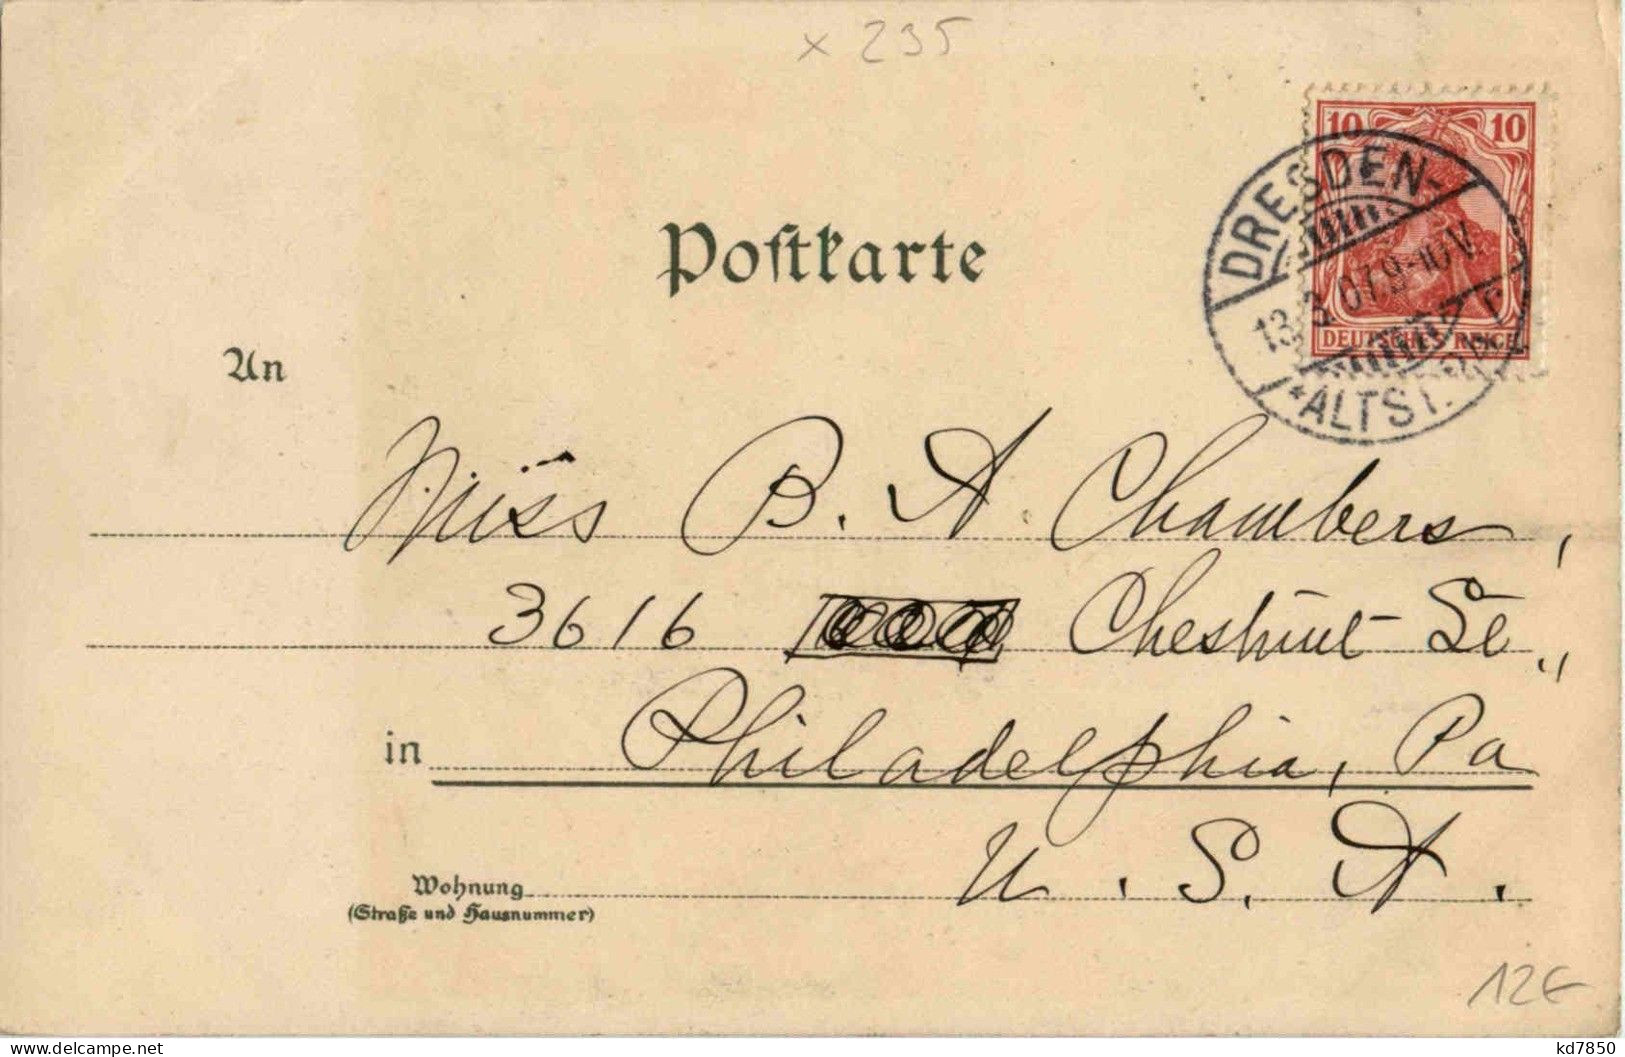 x 235
10 10
DEUTSCHES REICH
DRESDEN-
13. 3. 07. 9-10 V.
*ALTST.
Postkarte
An
Miss B. A. Chambers,
3616 Chestnut St.,
in Philadelphia, Pa
U. S. A.
Wohnung
(Straße und Hausnummer)
12€
kd7850